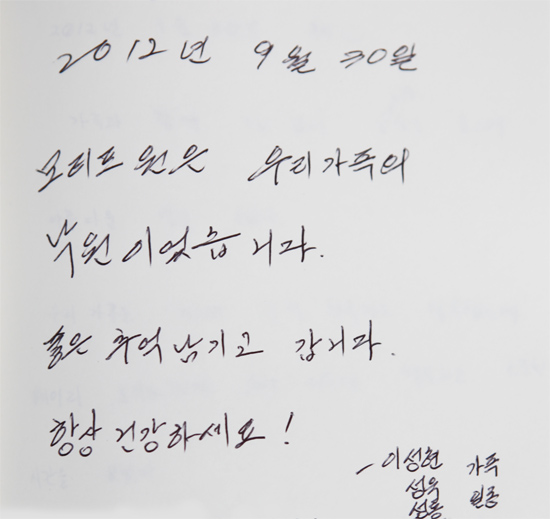 2012년 9월 30일
모티프 원은 우리가족의
낙원이었습니다.
좋은 추억 남기고 갑니다.
항상 건강하세요!
- 이성현 가족
성우